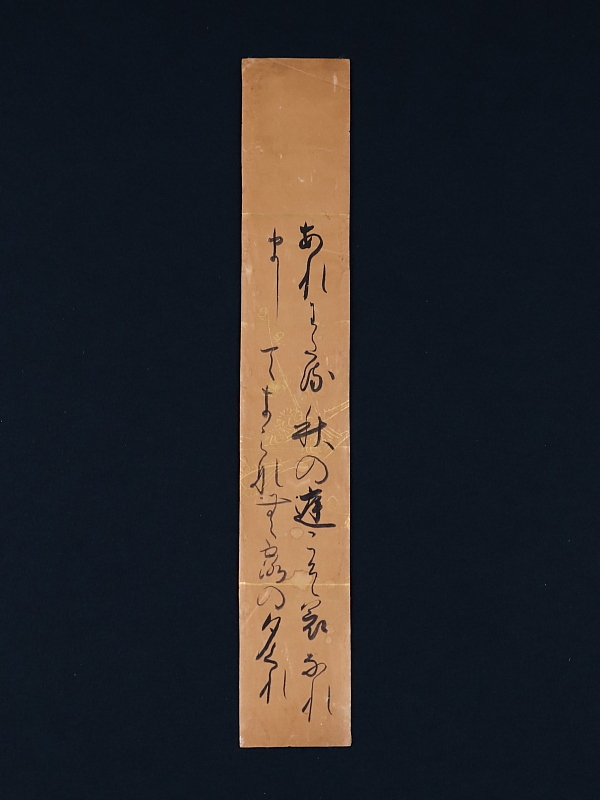 あれわたる秋の庭こそ哀なれ
ましてきえなむ露の夕くれ